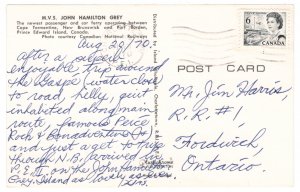 M.V.S. JOHN HAMILTON GREY
The newest passenger and car ferry operating between
Cape Tormentine, New Brunswick and Port Borden,
Prince Edward Island, Canada.
Photo courtesy Canadian National Railways
Aug 20/70.
After a superb
enjoyable trip around
the Gaspé (water close
to road, hilly, quiet
inhabited along main
route, famous Percé
Rock & Bonaventure Is) and
and just a get to trip
through N.B., arrived in
P.E.I. on the John Hamilton
Grey. Island as lovely as ever.
POST CARD
6
Mr. Jim Harris,
R.R. #1
Fordwich,
Ontario.